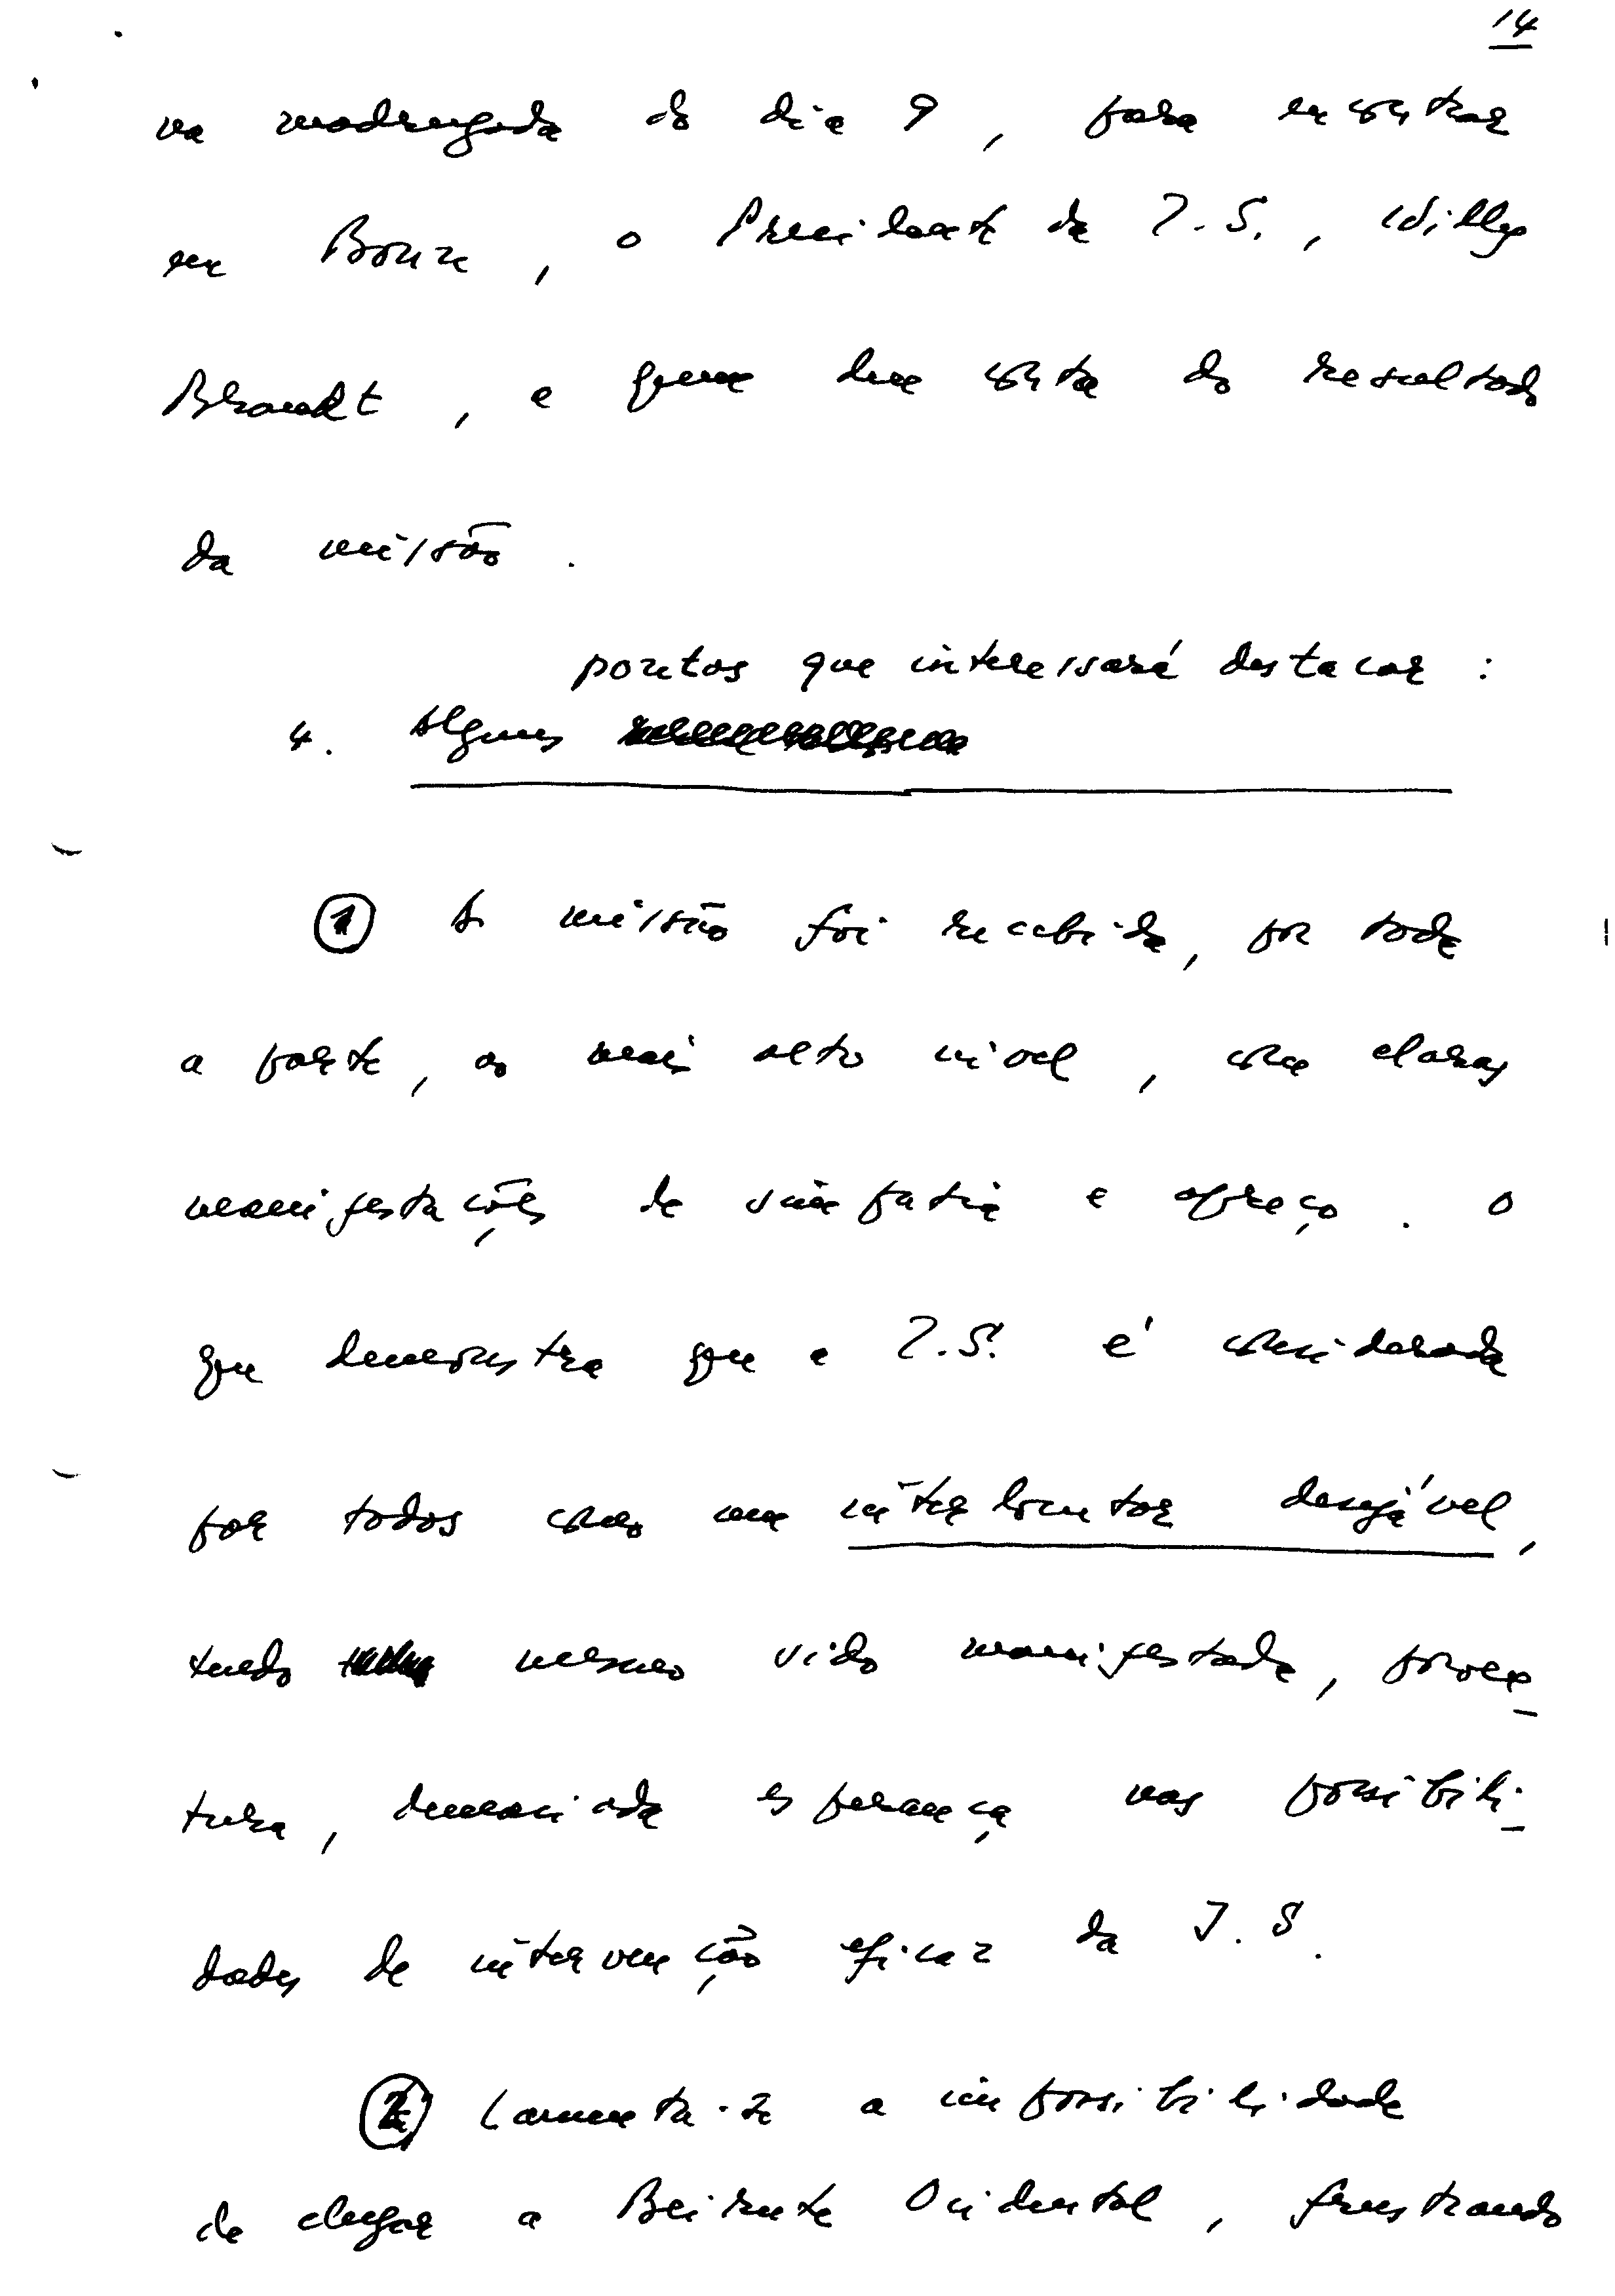 14
na madrugada do dia 9, para encontrar
em Bona, o Presidente da I.S., Willy
Brandt, a quem deu conta do resultado
da missão.
pontos que interessará destacar:
4. Alguns
① A missão foi recebida, por toda
a parte, ao mais alto nível, com claras
manifestações de simpatia e apreço. O
que demonstra que a I.S. é considerada
por todos como um interlocutor desejável,
tendo mesmo sido manifestada, porven-
tura, demasiada esperança nas possibili-
dades de intervenção eficaz da I.S.
② Lamenta-se a impossibilidade
de chegar a Beirute Ocidental, frustrando